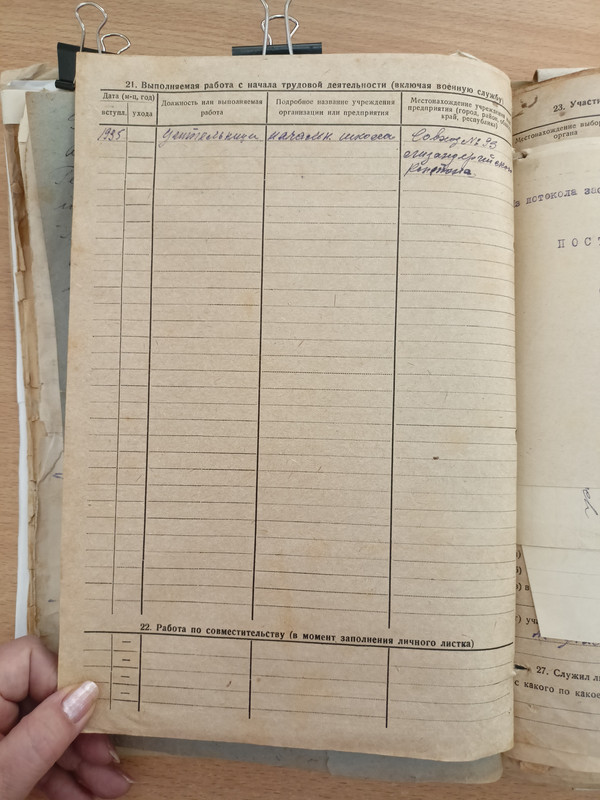 21. Выполняемая работа с начала трудовой деятельности (включая военную службу,
Дата (м-ц, год)
вступл.
ухода
Должность или выполняемая
работа
Подробное название учреждения
организации или предприятия
Местонахождение учреждения
предприятия (город, район,
край, республики)
1935
учительница
началн. школа
Совхоз № 33
22. Работа по совместительству (в момент заполнения личного листка)
23. Участи
Местонахождение выбор
органа
потокола зас
ПОСТ
27. Служил л
с какого по какое